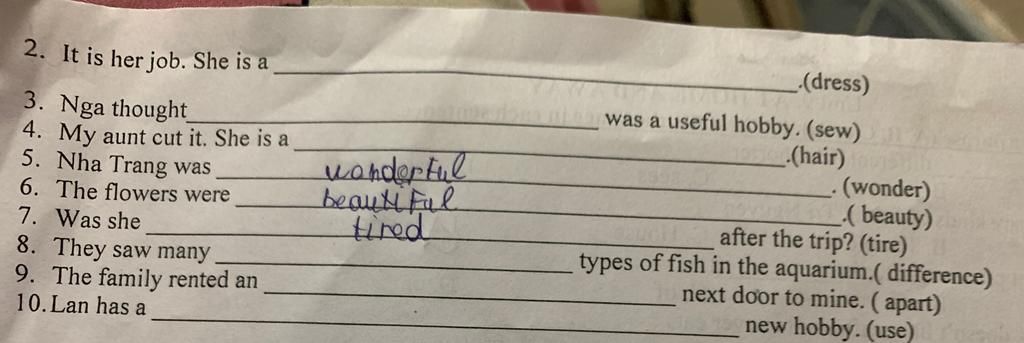 2. It is her job. She is a ______.(dress)
3. Nga thought______ was a useful hobby. (sew)
4. My aunt cut it. She is a ______.(hair)
5. Nha Trang was wonderful. (wonder)
6. The flowers were beautiful.( beauty)
7. Was she tired after the trip? (tire)
8. They saw many ______ types of fish in the aquarium.( difference)
9. The family rented an ______ next door to mine. ( apart)
10. Lan has a ______ new hobby. (use)